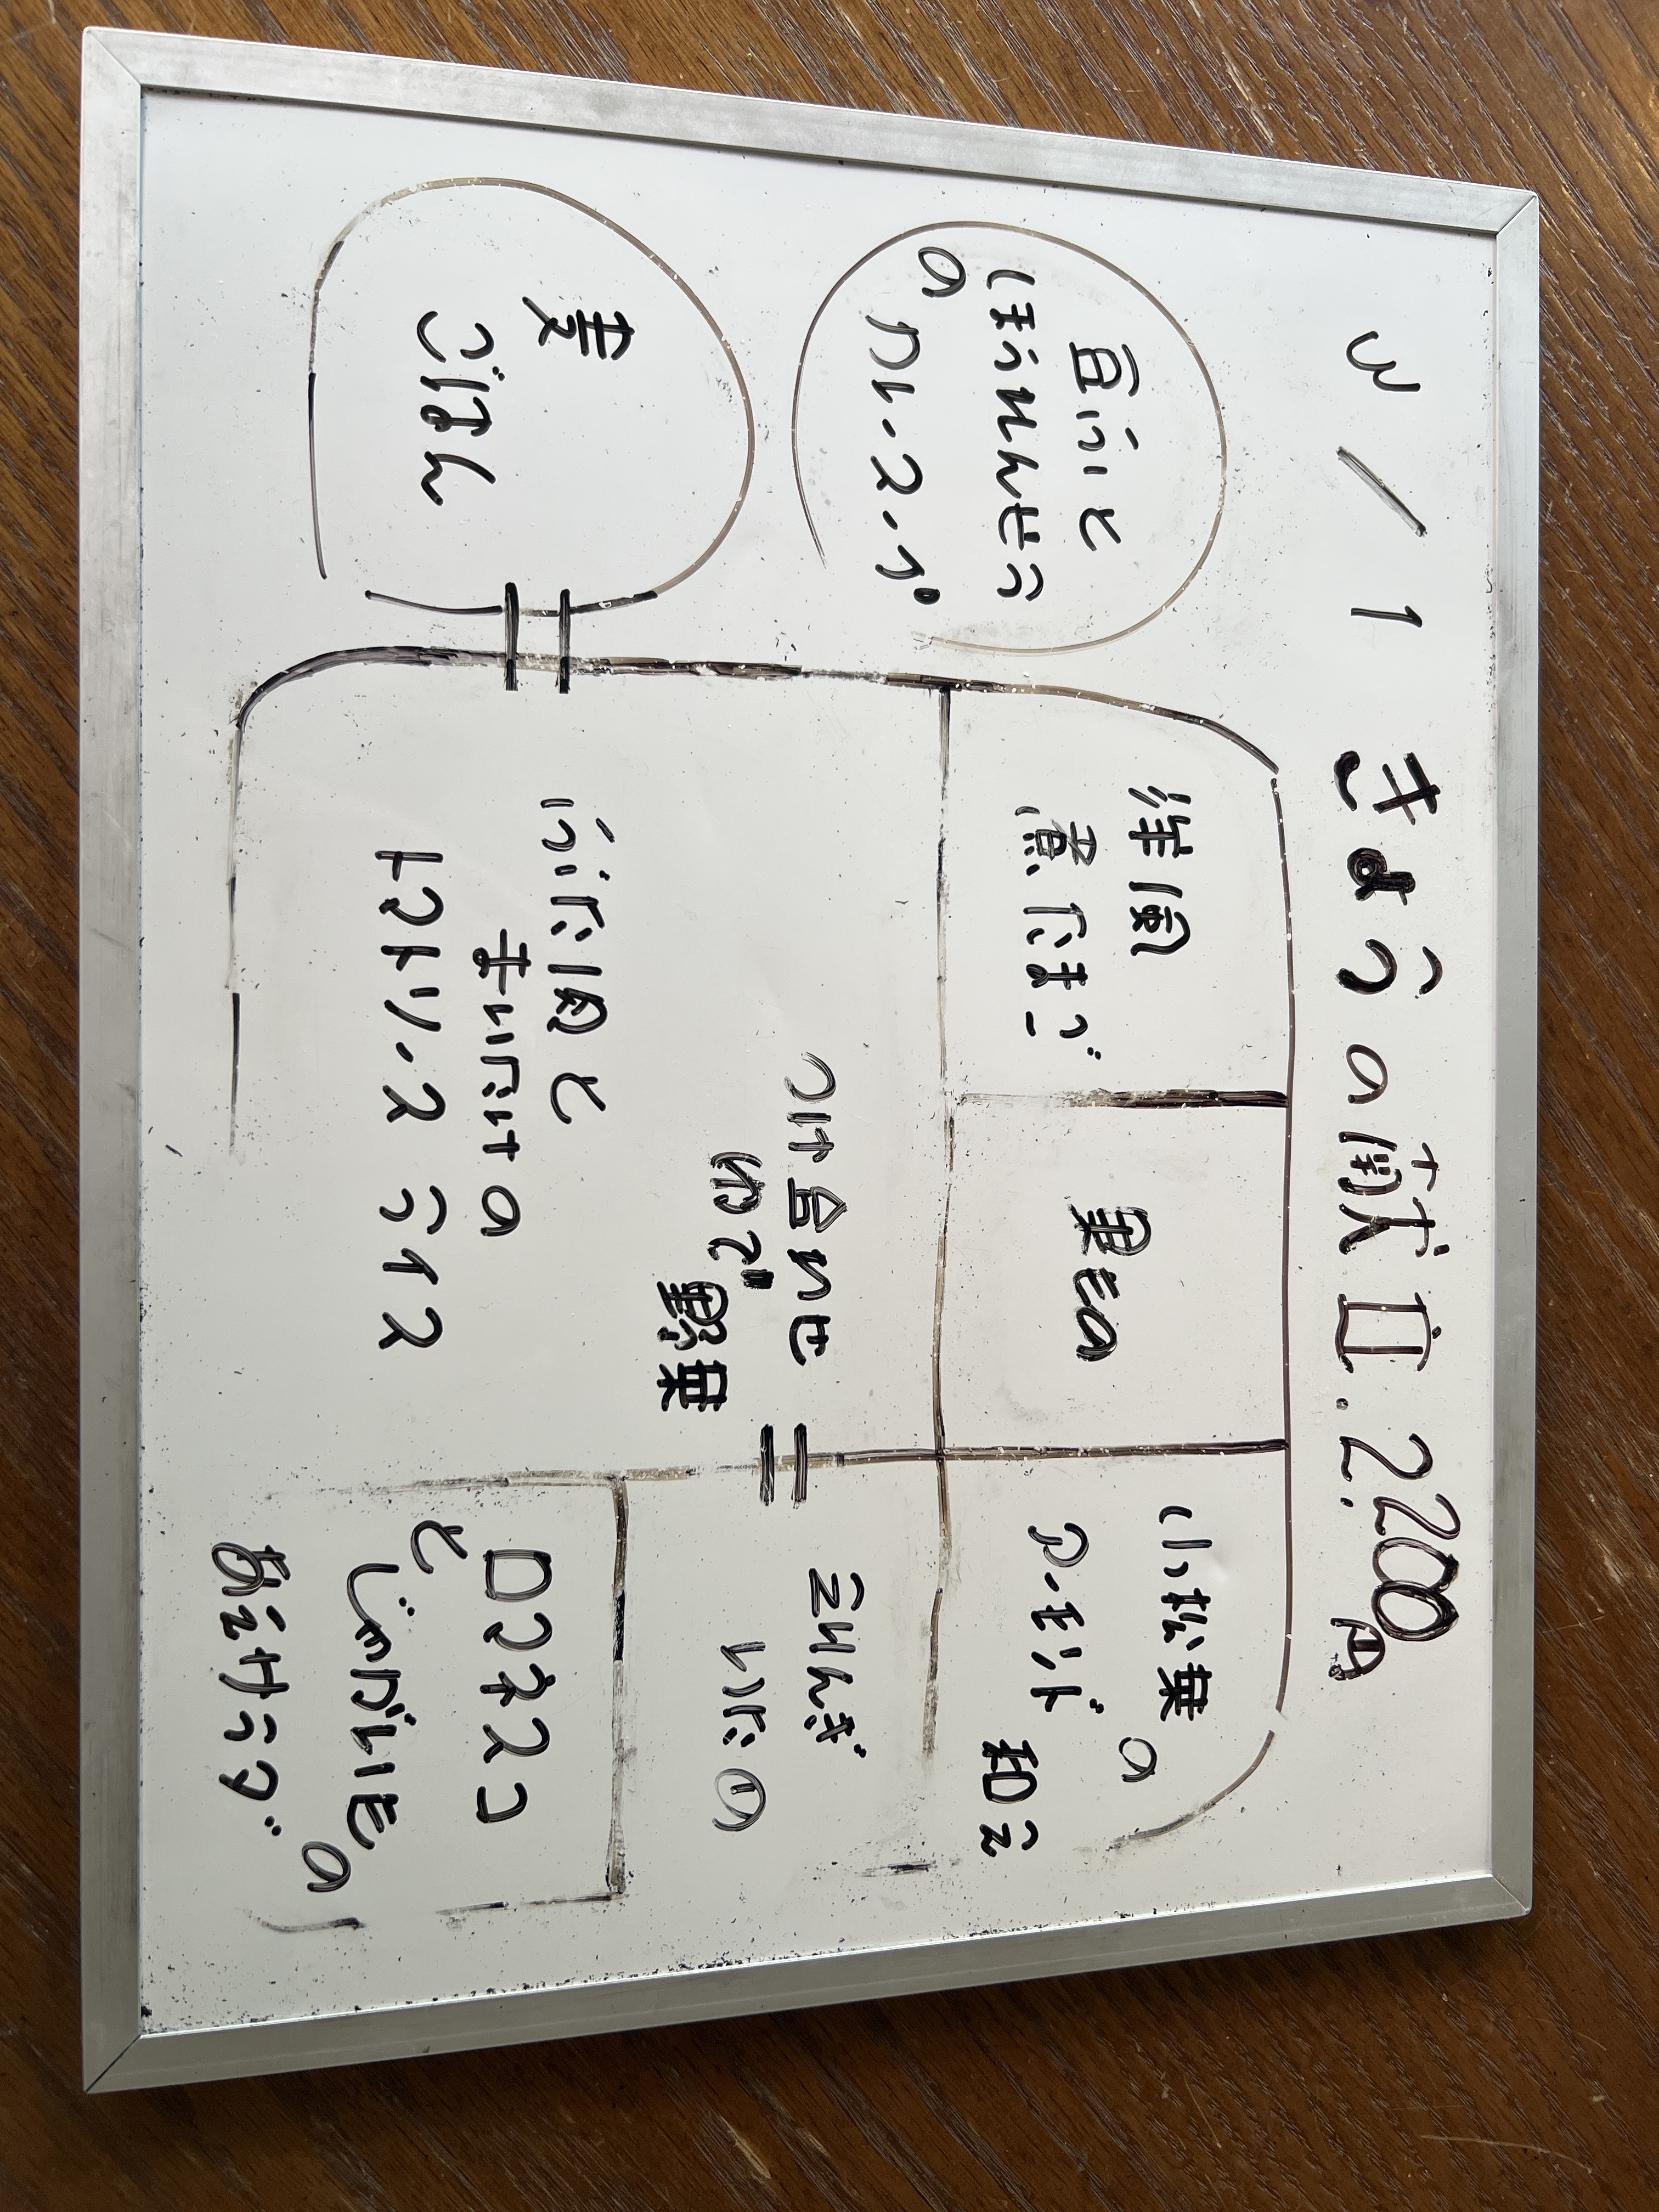 3/1 きょうの献立. 2,200円
豆ふと
ほうれんせう
の カレースープ
麦
ごはん
洋風
煮たまご
果もの
小松菜の
アーモンド
和え
つけ合わせ
ゆで
菜
ぶた肉と
まいたけの
トマトソース ライス
えりんぎ
いため
ロマネスコ
と じゃがいもの
あえサラダ